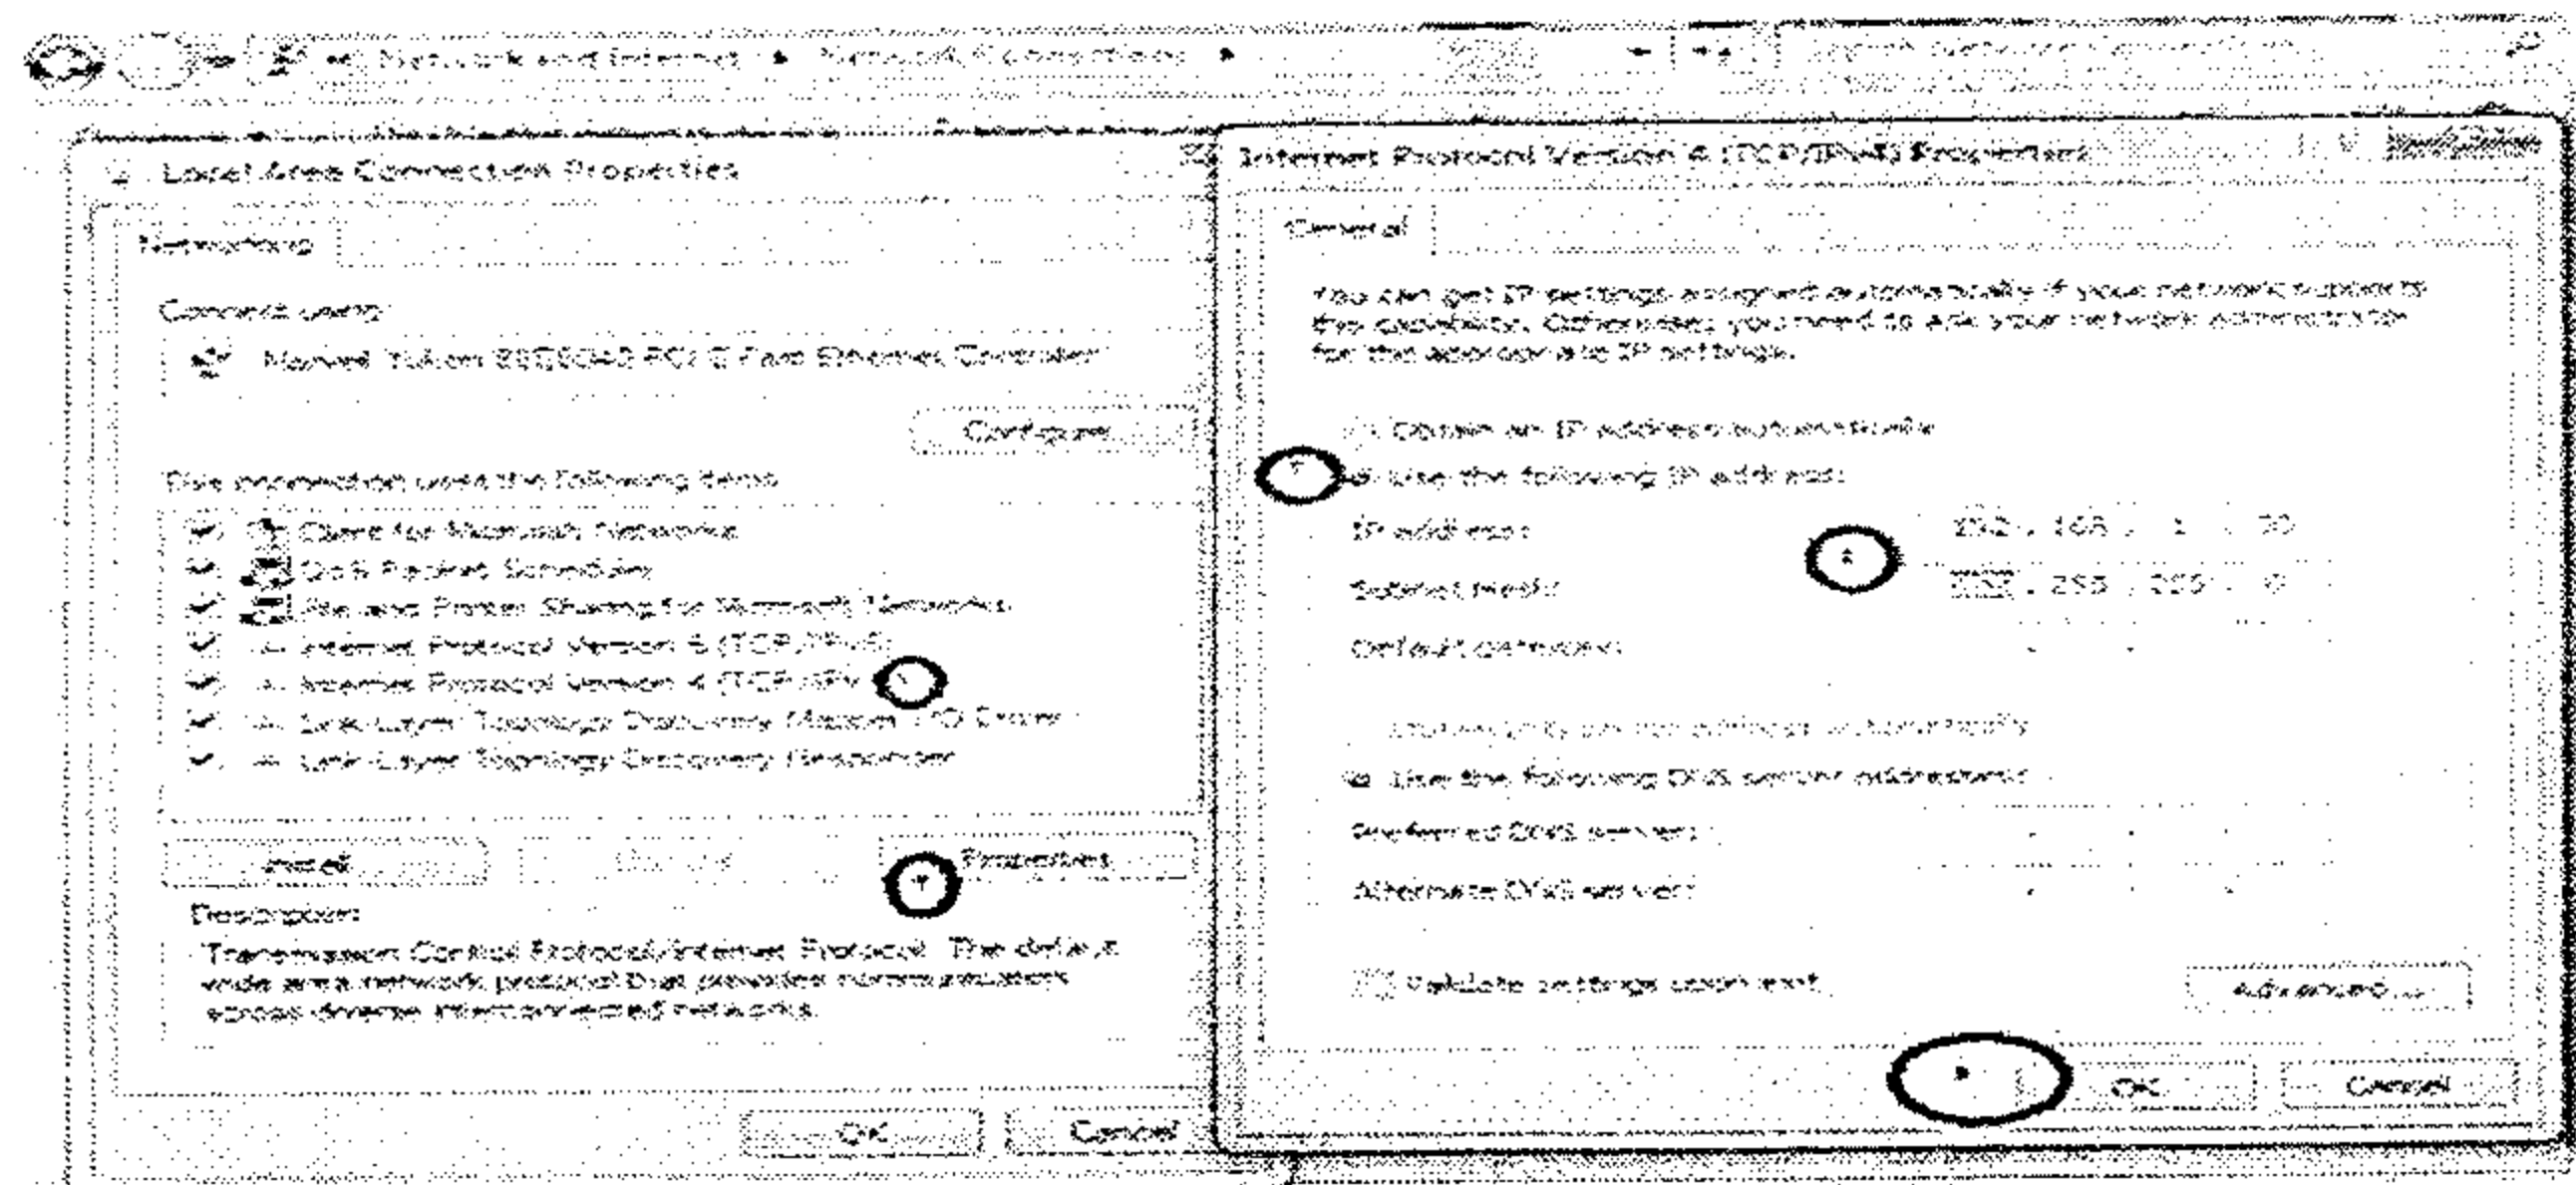 Network and Internet ▸ Network Connections ▸
Search Network Connections
Local Area Connection Properties
Networking
Connect using:
Marvell Yukon PCI-E Fast Ethernet Controller
Configure...
This connection uses the following items:
Client for Microsoft Networks
QoS Packet Scheduler
File and Printer Sharing for Microsoft Networks
Internet Protocol Version 6 (TCP/IPv6)
Internet Protocol Version 4 (TCP/IPv
Link-Layer Topology Discovery Mapper I/O Driver
Link-Layer Topology Discovery Responder
Install...
Properties
Description
Transmission Control Protocol/Internet Protocol. The default
wide area network protocol that provides communication
across diverse interconnected networks.
OK
Cancel
Internet Protocol Version 4 (TCP/IPv4) Properties
General
You can get IP settings assigned automatically if your network supports
this capability. Otherwise, you need to ask your network administrator
for the appropriate IP settings.
Obtain an IP address automatically
Use the following IP address:
IP address:
192 . 168 . 1 .
Subnet mask:
255 . 255 . 255 . 0
Default gateway:
Obtain DNS server address automatically
Use the following DNS server addresses:
Preferred DNS server:
Alternate DNS server:
Validate settings upon exit
Advanced...
OK
Cancel